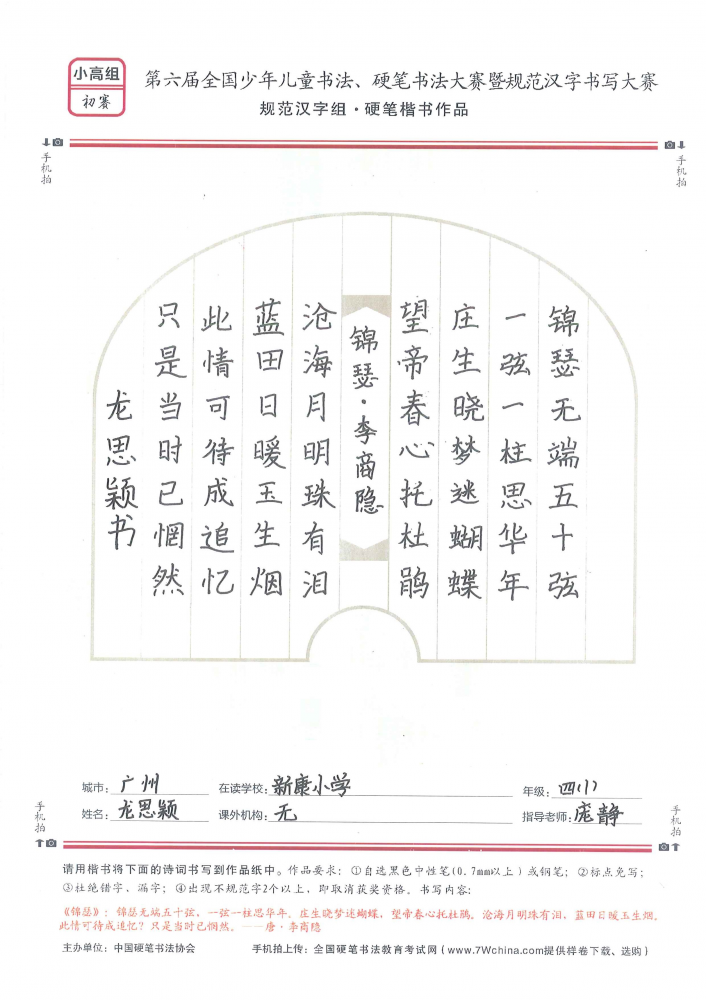 小高组
初赛
第六届全国少年儿童书法、硬笔书法大赛暨规范汉字书写大赛
规范汉字组·硬笔楷书作品
手机拍
手机拍
锦瑟无端五十弦
一弦一柱思华年
庄生晓梦迷蝴蝶
望帝春心托杜鹃
锦瑟·李商隐
沧海月明珠有泪
蓝田日暖玉生烟
此情可待成追忆
只是当时已惘然
龙思颖书
城市：广州 在读学校：新康小学 年级：四(1)
姓名：龙思颖 课外机构：无 指导老师：庞静
手机拍
手机拍
请用楷书将下面的诗词书写到作品纸中。作品要求：①自选黑色中性笔(0.7mm以上)或钢笔；②标点免写；
③杜绝错字、漏字；④出现不规范字2个以上，即取消获奖资格。书写内容：
《锦瑟》：锦瑟无端五十弦，一弦一柱思华年。庄生晓梦迷蝴蝶，望帝春心托杜鹃。沧海月明珠有泪，蓝田日暖玉生烟。
此情可待成追忆？只是当时已惘然。——唐·李商隐
主办单位：中国硬笔书法协会 手机拍上传：全国硬笔书法教育考试网(www.7Wchina.com提供样卷下载、选购)